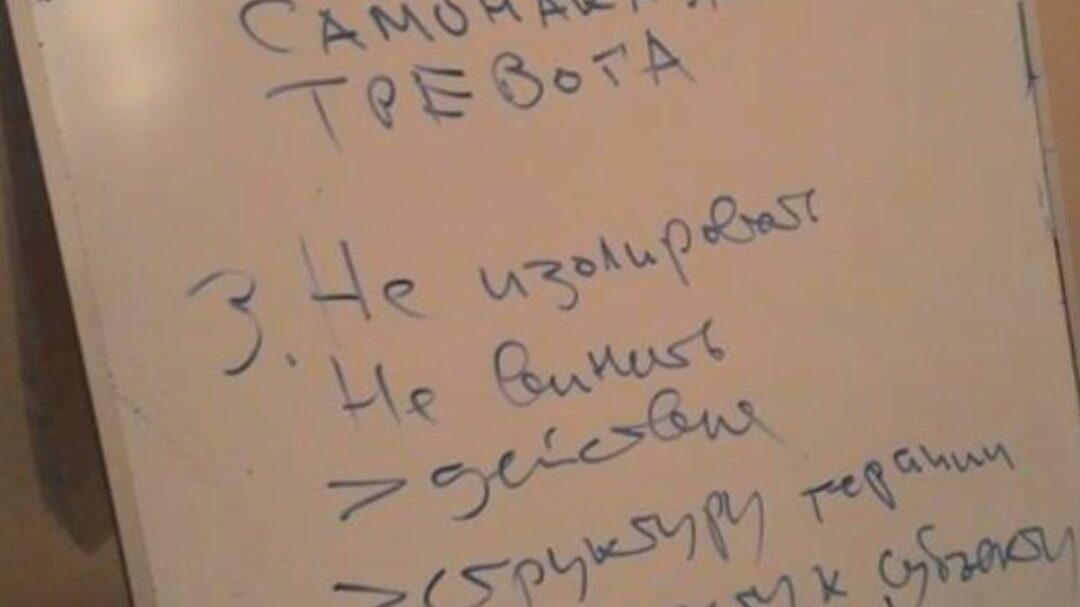 ТРЕВОГА
3. Не изолироват
Не винить
> действия
> структуру терапии
к субъекту